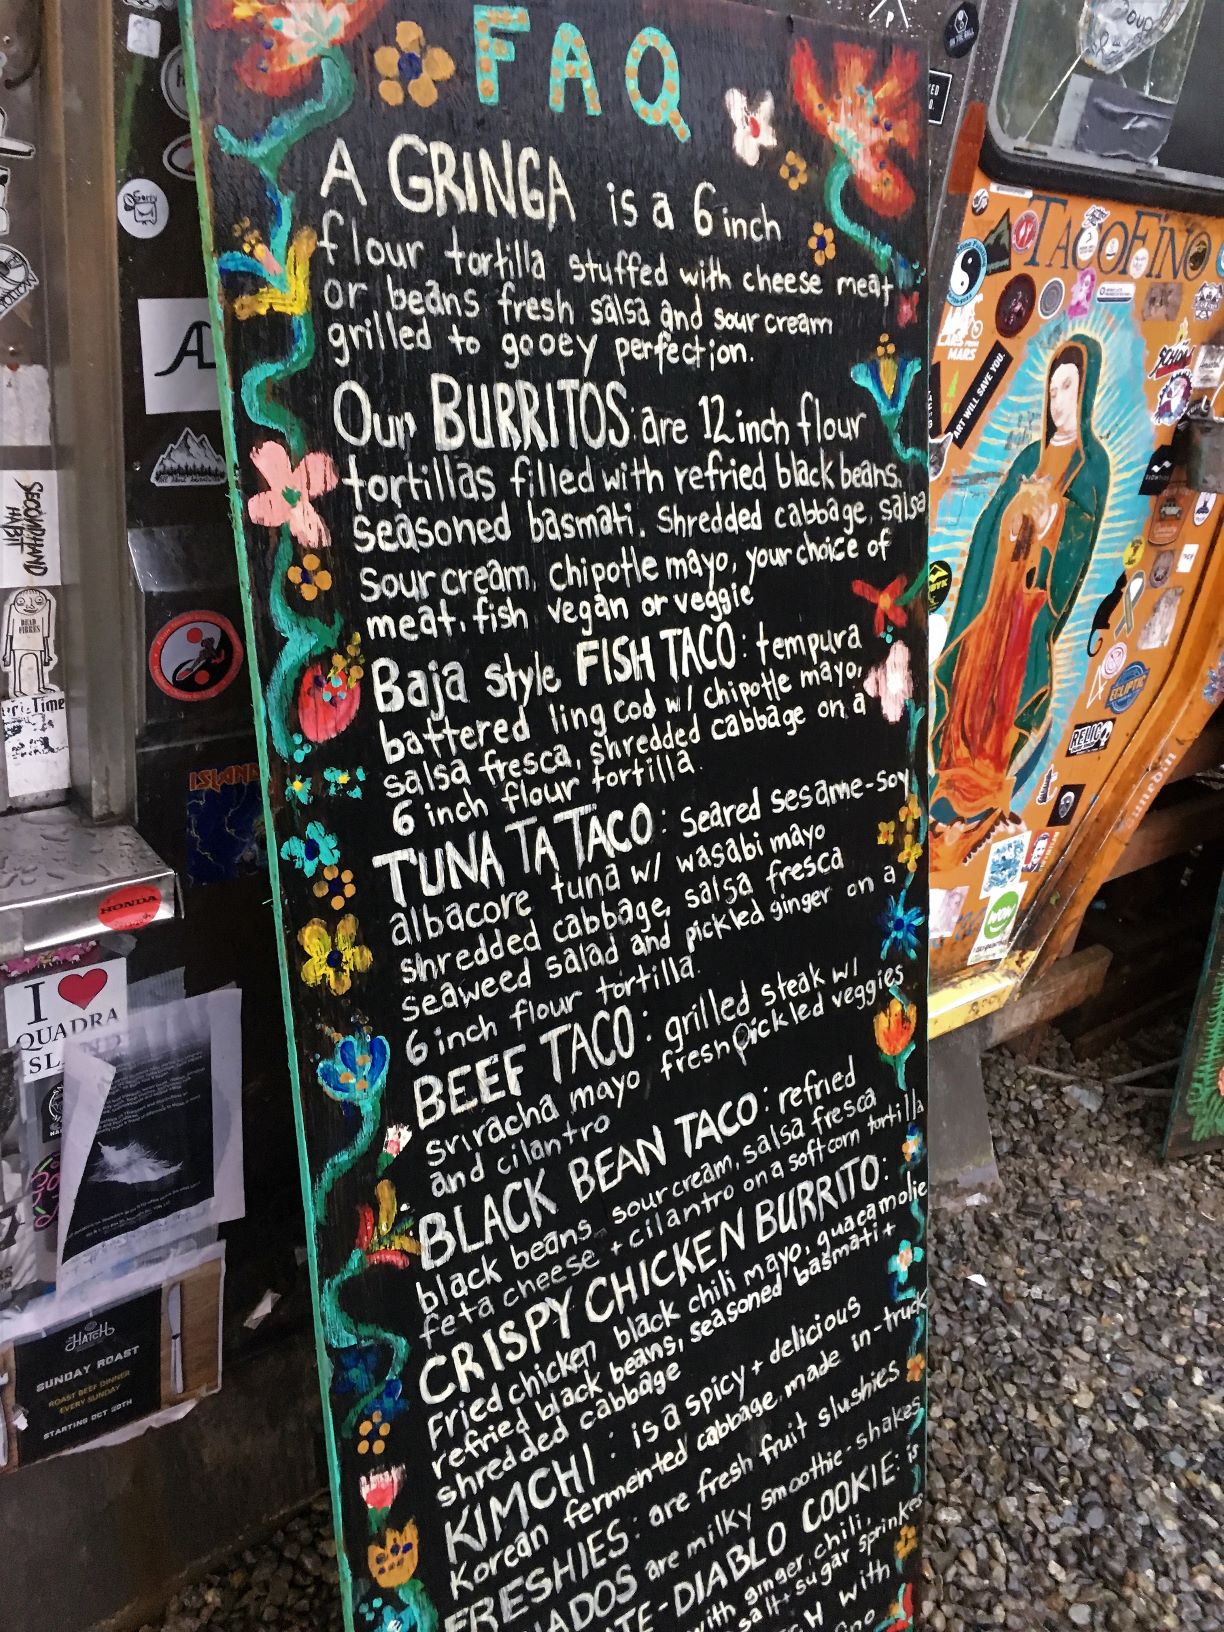 FAQ
A GRINGA is a 6 inch
flour tortilla stuffed with cheese meat
or beans fresh salsa and sour cream
grilled to gooey perfection.
Our BURRITOS: are 12 inch flour
tortillas filled with refried black beans,
seasoned basmati, shredded cabbage, salsa
sour cream, chipotle mayo, your choice of
meat, fish vegan or veggie
Baja style FISH TACO: tempura
battered ling cod w/ chipotle mayo,
salsa fresca, shredded cabbage on a
6 inch flour tortilla.
TUNA TA TACO: seared sesame-soy
albacore tuna w/ wasabi mayo
shredded cabbage, salsa fresca
seaweed salad and pickled ginger on a
6 inch flour tortilla.
BEEF TACO: grilled steak w/
sriracha mayo fresh pickled veggies
and cilantro
BLACK BEAN TACO: refried
black beans, sour cream, salsa fresca
feta cheese + cilantro on a soft corn tortilla
CRISPY CHICKEN BURRITO:
Fried chicken, black chili mayo, guacamolie
refried black beans, seasoned basmati +
shredded cabbage
KIMCHI: is a spicy + delicious
Korean fermented cabbage, made in-truck
FRESHIES: are fresh fruit slushies
NADOS are milky smoothie-shakes
TE-DIABLO COOKIE: is
with ginger, chili,
salt + sugar sprinkes
H with
fino
TACOFINO
ART WILL SAVE YOU.
MARS
RELIC
ECLIPTIC
WOW
SECONDHAND
HABIT
DEAD
FIBRES
Time
Sorry
ISLAN
HONDA
I
QUADRA
ISL
HATCH
SUNDAY ROAST
ROAST BEEF DINNER
EVERY SUNDAY
STARTING OCT 20TH